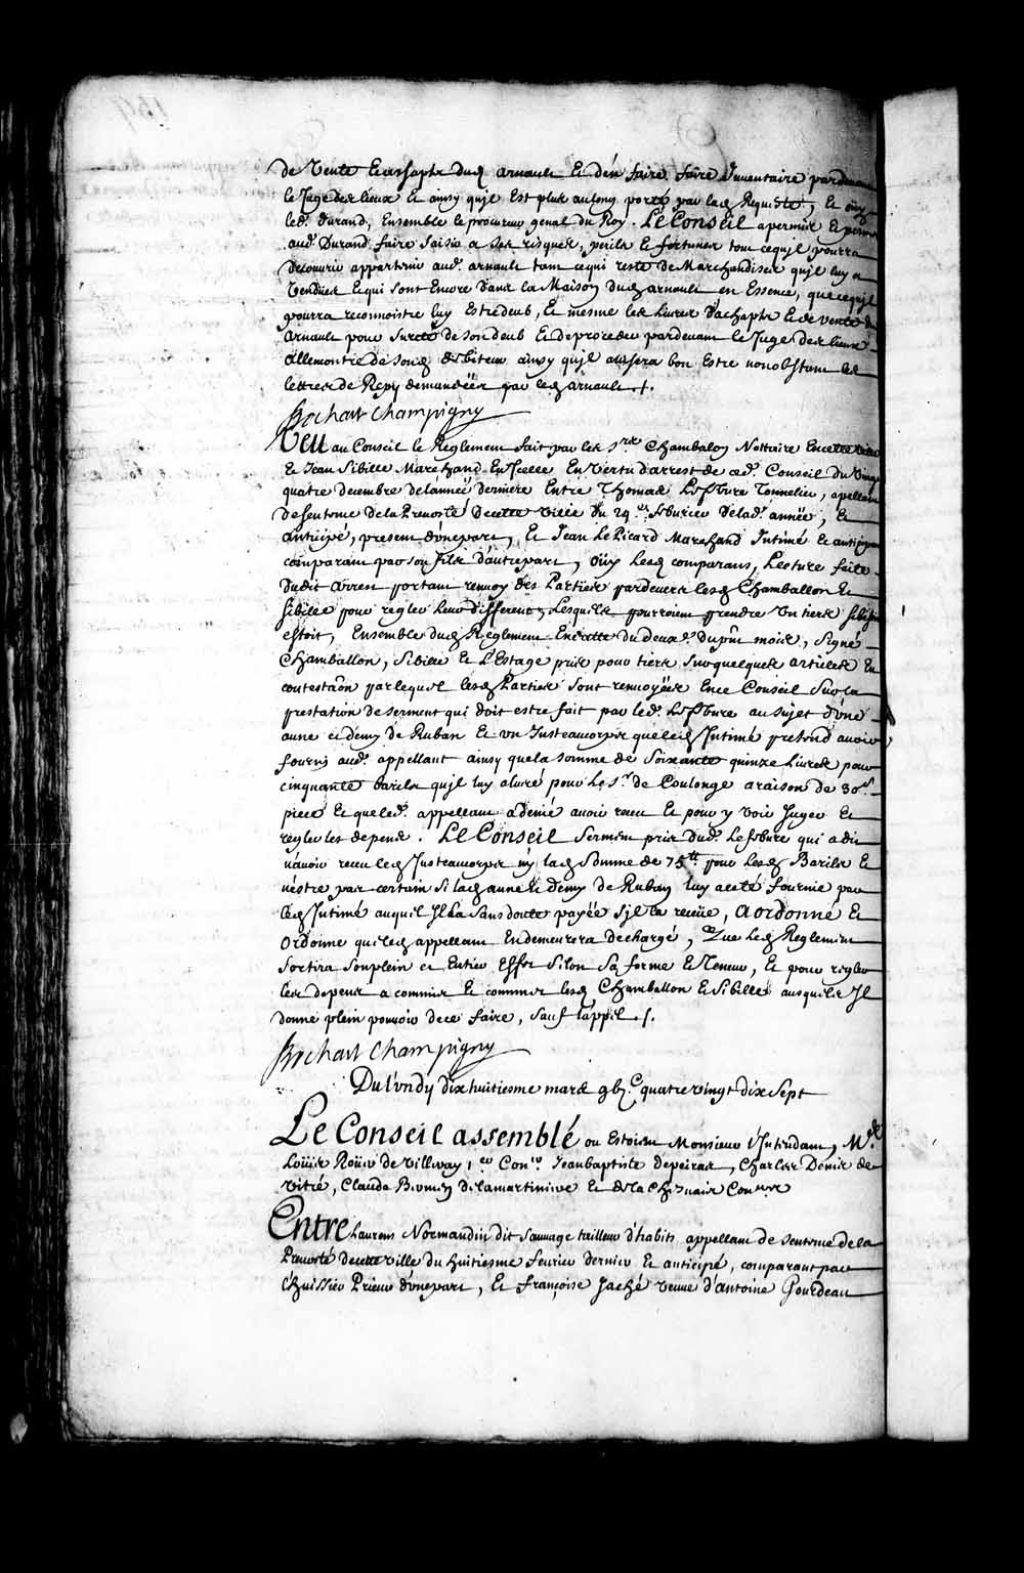 de Vente et achapts dud arnault et den faire faire Inventaire pardevant
le Juge des lieux et ainsy quil est plus au long porté par lad Requeste, et ouy
led. durand, Ensemble le procureur genal du Roy. Le Conseil a permis et permet
aud. Durand faire saisir a ses risques, perils et fortunes tout ce quil pourra
decouvrir appartenir aud. arnault tant ce qui reste de Marchandises quil luy a
vendües et qui sont Encore dans la Maison dud arnault en Essence, que ce quil
pourra reconnoistre luy Estre deub, Et mesme les Livres d'achapts et de vente dud
arnault pour sureté de son deub Et de proceder pardevant le Juge des lieux
allencontre de sond debiteur ainsy quil avisera bon Estre nonobstant les
lettres de Repy demandéés par led arnault ./.
Bochart Champigny
Veu au Conseil le Reglement fait par les Srs Chambalon Nottaire En cette ville
Et Jean Sibille Marchand En Icelle En vertu d'arrest de ced. Conseil du vingt
quatre decembre de l'année derniere Entre Thomas Lefebure Tonnelier, apellant
de sentence de la Prevosté de cette ville du 29e. febvrier de lad. année, Et
anticipé, present d'une part, Et Jean Le Picard Marchand Intimé Et anticipant
comparant par son fils d'autre part, Oüy lesd comparans, Lecture faite
dudit arrest portant renvoy des Parties pardevers lesd Chamballon Et
Sibille pour regler leur different, lesquels pourroient prendre un tiers si besoin
estoit, Ensemble dud Reglement En datte du deuxe. du pnt mois, signé
Chamballon, Sibille Et L'Estage pris pour tiers sur quelques articles En
contestaon par lequel lesd Parties sont renvoyées En ce Conseil sur la
prestation de serment qui doit estre fait par led. Lefebure au sujet d'une
aune et demy de Ruban Et un Justeaucorps que led Intimé pretend avoir
fourny aud. appellant ainsy que la somme de soixante quinze livres pour
cinquante barils quil luy a livré pour le Sr. de Coulonge a raison de 30s.
piece Et que led. appellant a denié avoir receu Et pour y voir Juger Et
regler les depens. Le Conseil serment pris dud. Lefebure qui a dit
n'avoir receu led Justeaucorps ny lad somme de 75tt pour lesd Barils Et
n'estre pas certain si lad aune Et demy de Ruban luy a eté fournie par
led Intimé auquel Il la sans doute payéé sil la receüe, A ordonné Et
Ordonne que led appellant En demeurera dechargé, Que led Reglement
sortira son plein et Entier Effet selon sa forme Et Teneur, Et pour regler
les depens a commis Et commet lesd Chamballon Et Sibille ausquels Il
donne plein pouvoir de ce faire, sauf l'appel ./.
Bochart Champigny
Du lundy dix huitiesme mars gbjC quatre vingt dix Sept
Le Conseil assemblé ou Estoient Monsieur l'Intendant, Mes.
Loüis Roüer de Villeray 1er Coner Jean baptiste depeiras, Charles Denis de
Vitré, Claude Bermen de lamartiniere Et de la Chesnaie Coners
Entre Laurens Normandin dit Sauvage tailleur d'habits appellant de sentence de la
Prevosté de cette ville du huitiesme fevrier dernier Et anticipé, comparant par
l'huissier Prieur d'une part, Et françoise Haché veuve d'antoine Gourdeau